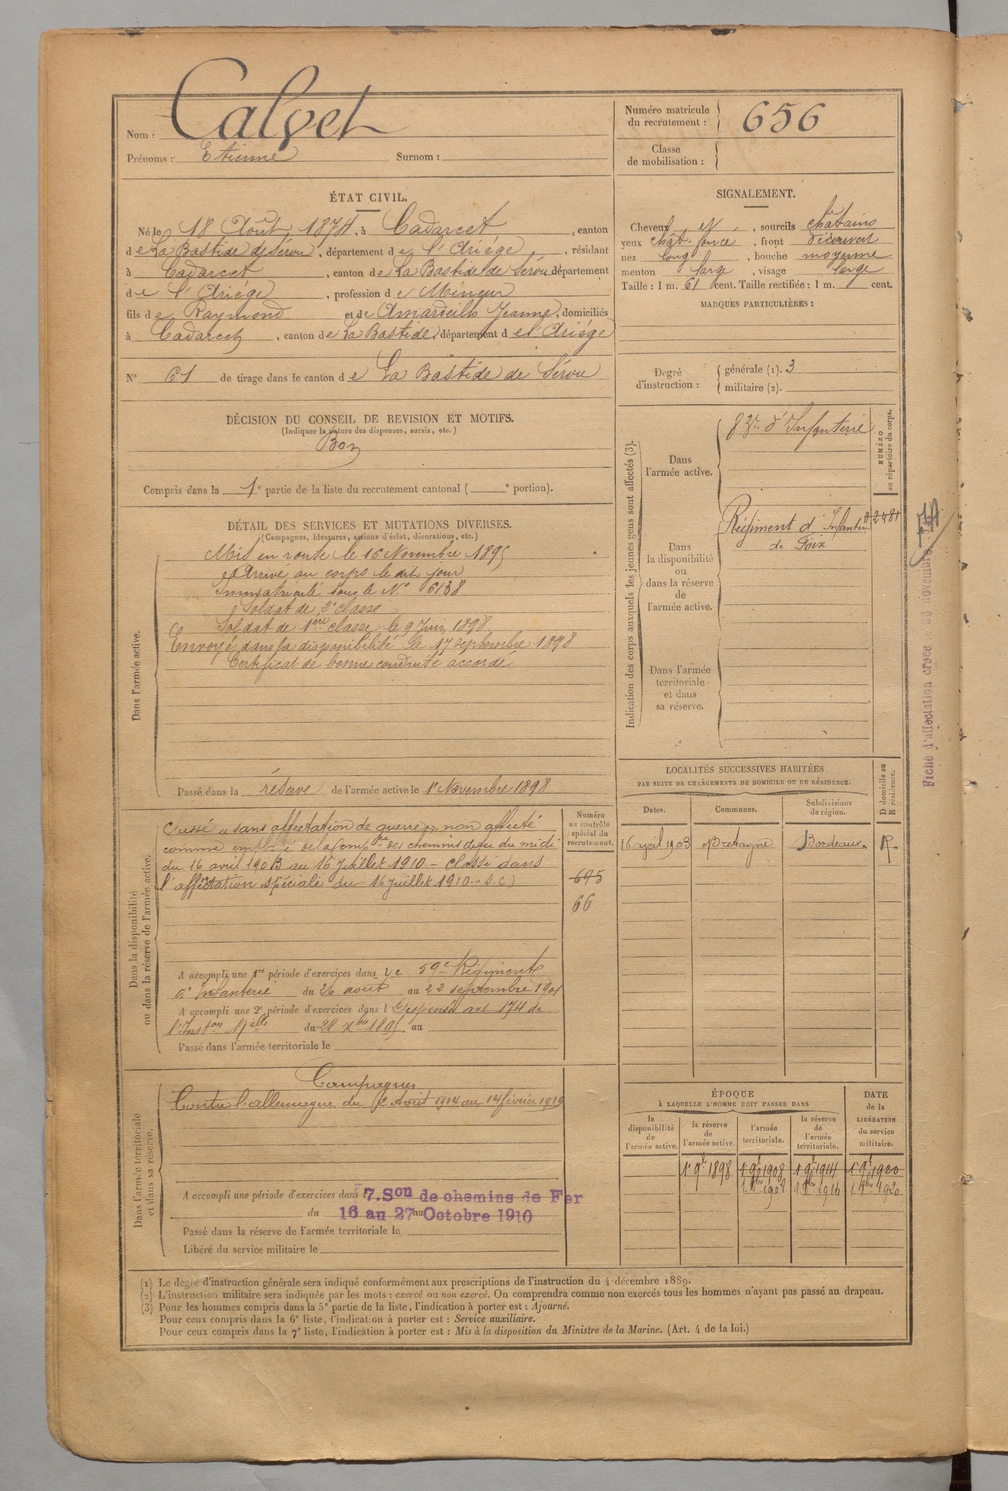 Nom : Calvet
Prénoms : Etienne Surnom :
Numéro matricule du recrutement : 656
Classe de mobilisation :
ÉTAT CIVIL.
Né le 18 Août 1874, à Cadarcet, canton
de La Bastide de Sérou, département de l'Ariége, résidant
à Cadarcet, canton de La Bastide de Sérou département
de l'Ariége, profession de Mineur
fils de Raymond et de Amardeilh Jeanne, domiciliés
à Cadarcet, canton de La Bastide, département de l'Ariége
N° 61 de tirage dans le canton de La Bastide de Sérou
SIGNALEMENT.
Cheveux et, sourcils châtains
yeux chât. foncé, front découvert
nez long, bouche moyenne
menton large, visage large
Taille : 1 m. 61 cent. Taille rectifiée : 1 m. cent.
MARQUES PARTICULIÈRES :
Degré d'instruction : générale (1). 3
militaire (2).
DÉCISION DU CONSEIL DE REVISION ET MOTIFS.
(Indiquer la nature des dispenses, sursis, etc.)
Bon
Compris dans la 1e partie de la liste du recrutement cantonal ( e portion).
DÉTAIL DES SERVICES ET MUTATIONS DIVERSES.
(Campagnes, blessures, actions d'éclat, décorations, etc.)
Dans l'armée active.
Mis en route le 16 Novembre 1895
Arrivé au corps le dit jour
Immatriculé sous le N° 6138
Soldat de 2e classe
Soldat de 1ère classe le 9 Juin 1898
Envoyé dans la disponibilité le 17 septembre 1898
Certificat de bonne conduite accordé
Passé dans la réserve de l'armée active le 1er Novembre 1898
Indication des corps auxquels les jeunes gens sont affectés (3).
NUMÉRO au répertoire du corps.
Dans l'armée active.
83e d'Infanterie
Dans la disponibilité ou dans la réserve de l'armée active.
Régiment d'Infanterie
de Foix
Dans l'armée territoriale et dans sa réserve.
Fiche d'affectation créée
LOCALITÉS SUCCESSIVES HABITÉES
PAR SUITE DE CHANGEMENTS DE DOMICILE OU DE RÉSIDENCE.
Dates. Communes. Subdivisions de région. D domicile ou R résidence.
16 avril 1903 Bretagne Bordeaux R.
Dans la disponibilité ou dans la réserve de l'armée active.
Numéro au contrôle spécial du recrutement.
Classé "sans affectation de guerre" non affecté
comme employé de la Compie des chemins de fer du midi
du 16 avril 1903 au 16 juillet 1910 - Classé dans
l'affectation spéciale du 16 juillet 1910 - S.C)
695
66
A accompli une 1re période d'exercices dans le 59e Régiment
d'Infanterie du 26 août au 22 septembre 1901
A accompli une 2e période d'exercices dans l
Passé dans l'armée territoriale le
Dans l'armée territoriale et dans sa réserve.
Campagnes
Contre l'allemagne du 2 Août 1914 au 14 février 1919
A accompli une période d'exercices dans 7.Son de chemins de Fer
du 16 au 27 au Octobre 1910
Passé dans la réserve de l'armée territoriale le
Libéré du service militaire le
ÉPOQUE
À LAQUELLE L'HOMME DOIT PASSER DANS
DATE de la LIBÉRATION du service militaire.
la disponibilité de l'armée active. la réserve de l'armée active. l'armée territoriale. la réserve de l'armée territoriale.
1er 9bre 1898 1er 9bre 1908 1er 9bre 1914 1er 9bre 1920
(1) Le degré d'instruction générale sera indiqué conformément aux prescriptions de l'instruction du 4 décembre 1889.
(2) L'instruction militaire sera indiquée par les mots : exercé ou non exercé. On comprendra comme non exercés tous les hommes n'ayant pas passé au drapeau.
(3) Pour les hommes compris dans la 5e partie de la liste, l'indication à porter est : Ajourné.
Pour ceux compris dans la 6e liste, l'indication à porter est : Service auxiliaire.
Pour ceux compris dans la 7e liste, l'indication à porter est : Mis à la disposition du Ministre de la Marine. (Art. 4 de la loi.)